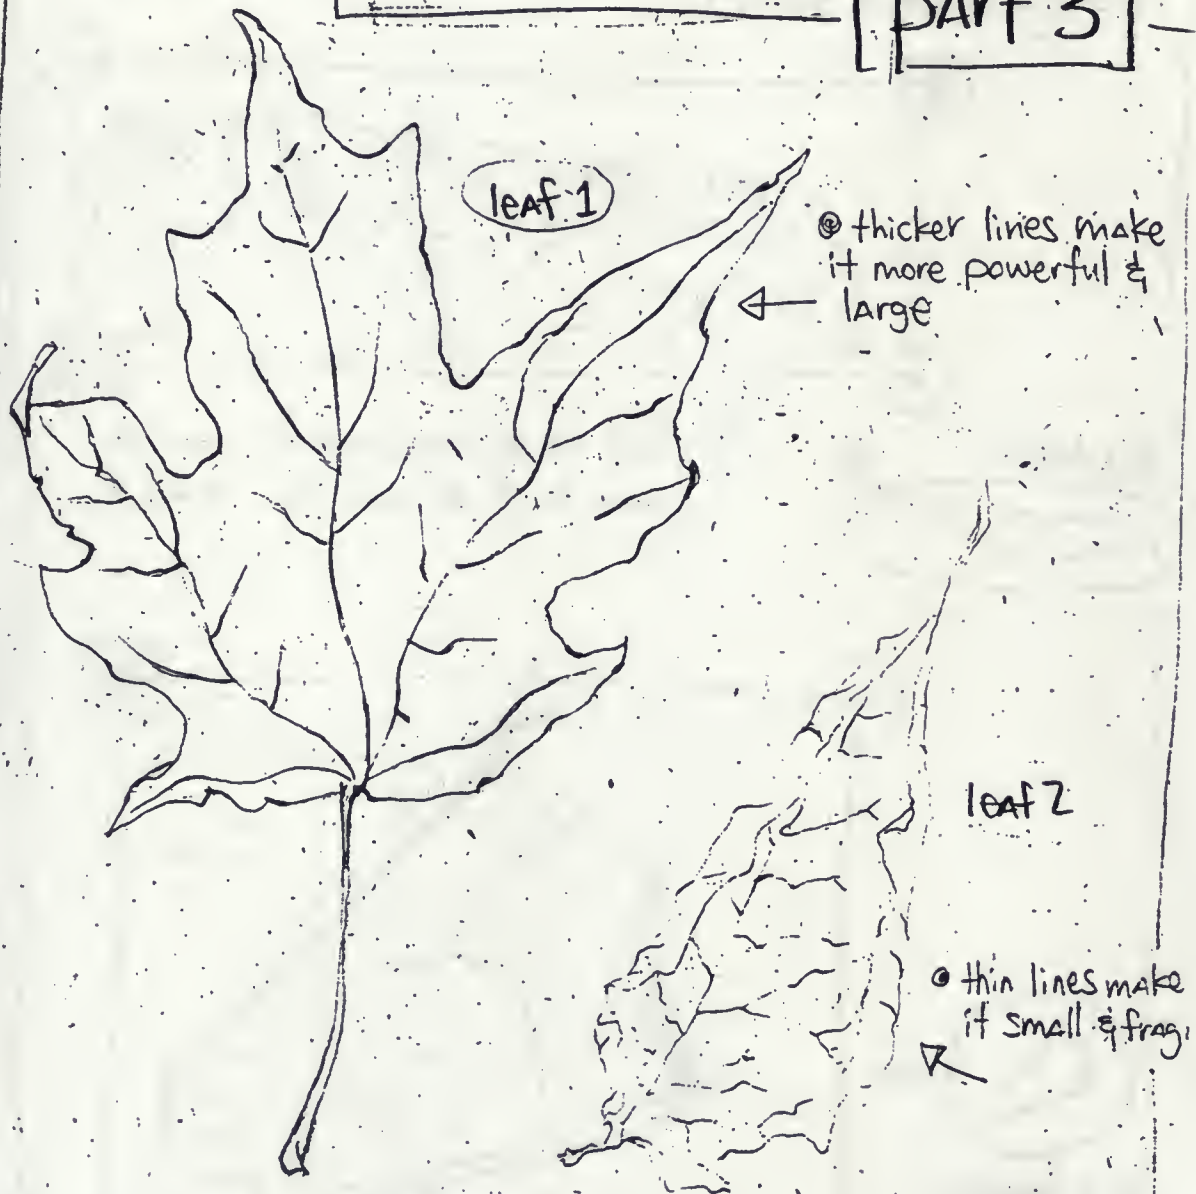 part 3
leaf 1
thicker lines make
it more powerful &
large
leaf 2
thin lines make
it small & frag